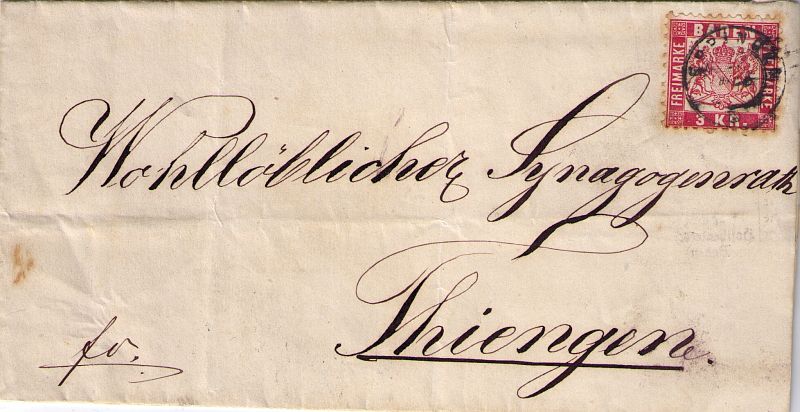 BADEN
FREIMARKE
FREIMARKE
3 KR.
Wohllöblicher Synagogenrath
Thiengen.
fr.